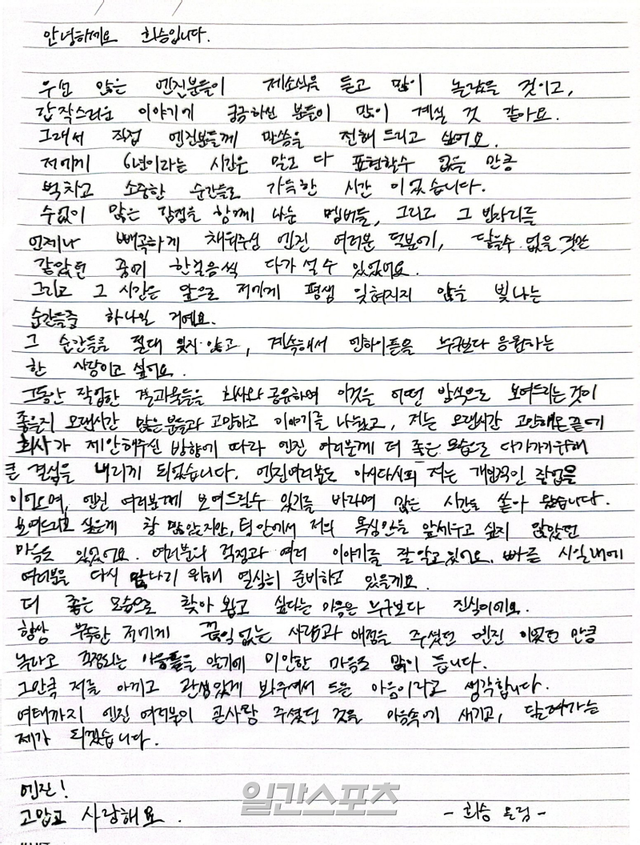 안녕하세요 희승입니다.
우선 많은 엔진분들이 제소식을 듣고 많이 놀랐을 것이고,
갑작스러운 이야기에 궁금하신 분들이 많이 계실 것 같아요.
그래서 직접 엔진분들께 말씀을 전해 드리고 싶어요.
저에게 6년이라는 시간은 말로 다 표현할수 없을 만큼
벅차고 소중한 순간들로 가득한 시간 이었습니다.
수없이 많은 감정을 함께 나눈 멤버들, 그리고 그 빈자리를
언제나 빼곡하게 채워주신 엔진 여러분 덕분에, 닿을수 없을 것만
같았던 꿈에 한걸음씩 다가 설 수 있었어요.
그리고 그 시간은 앞으로 저에게 평생 잊혀지지 않을 빛나는
순간들중 하나일 거예요.
그 순간들을 절대 잊지 않고, 계속해서 엔하이픈을 누구보다 응원하는
한 사람이고 싶어요.
그동안 작업한 결과물들을 회사와 공유하며 이것을 어떤 방식으로 보여드리는것이
좋을지 오랜시간 많은분들과 고민하고 이야기를 나눴고, 저는 오랜시간 고민해온끝에
회사가 제안해주신 방향에 따라 엔진 여러분께 더 좋은 모습으로 다가가기위해
큰 결심을 내리게 되었습니다. 엔진여러분도 아시다시피 저는 개인적인 작업을
이어오며, 엔진 여러분께 보여드릴수 있기를 바라며 많은 시간을 쏟아 왔습니다.
보여드리고 싶은게 참 많았지만, 팀 안에서 저의 욕심만을 앞세우고 싶지 않았던
마음도 있었어요. 여러분의 걱정과 여러 이야기를 잘 알고 있어요. 빠른 시일내에
여러분을 다시 만나기 위해 열심히 준비하고 있을게요.
더 좋은 모습으로 찾아 뵙고 싶다는 마음은 누구보다 진심이에요.
항상 부족한 저에게 끊임 없는 사랑과 애정을 주셨던 엔진 이었던 만큼
놀라고 걱정되는 마음들을 알기에 미안한 마음도 많이 듭니다.
그만큼 저를 아끼고 관심있게 봐주셔서 드는 마음이라고 생각합니다.
여태까지 엔진 여러분이 큰사랑 주셨던 것을 마음속에 새기고, 달려가는
제가 되겠습니다.
엔진!
고맙고 사랑해요.
- 희승 올림 -
일간스포츠